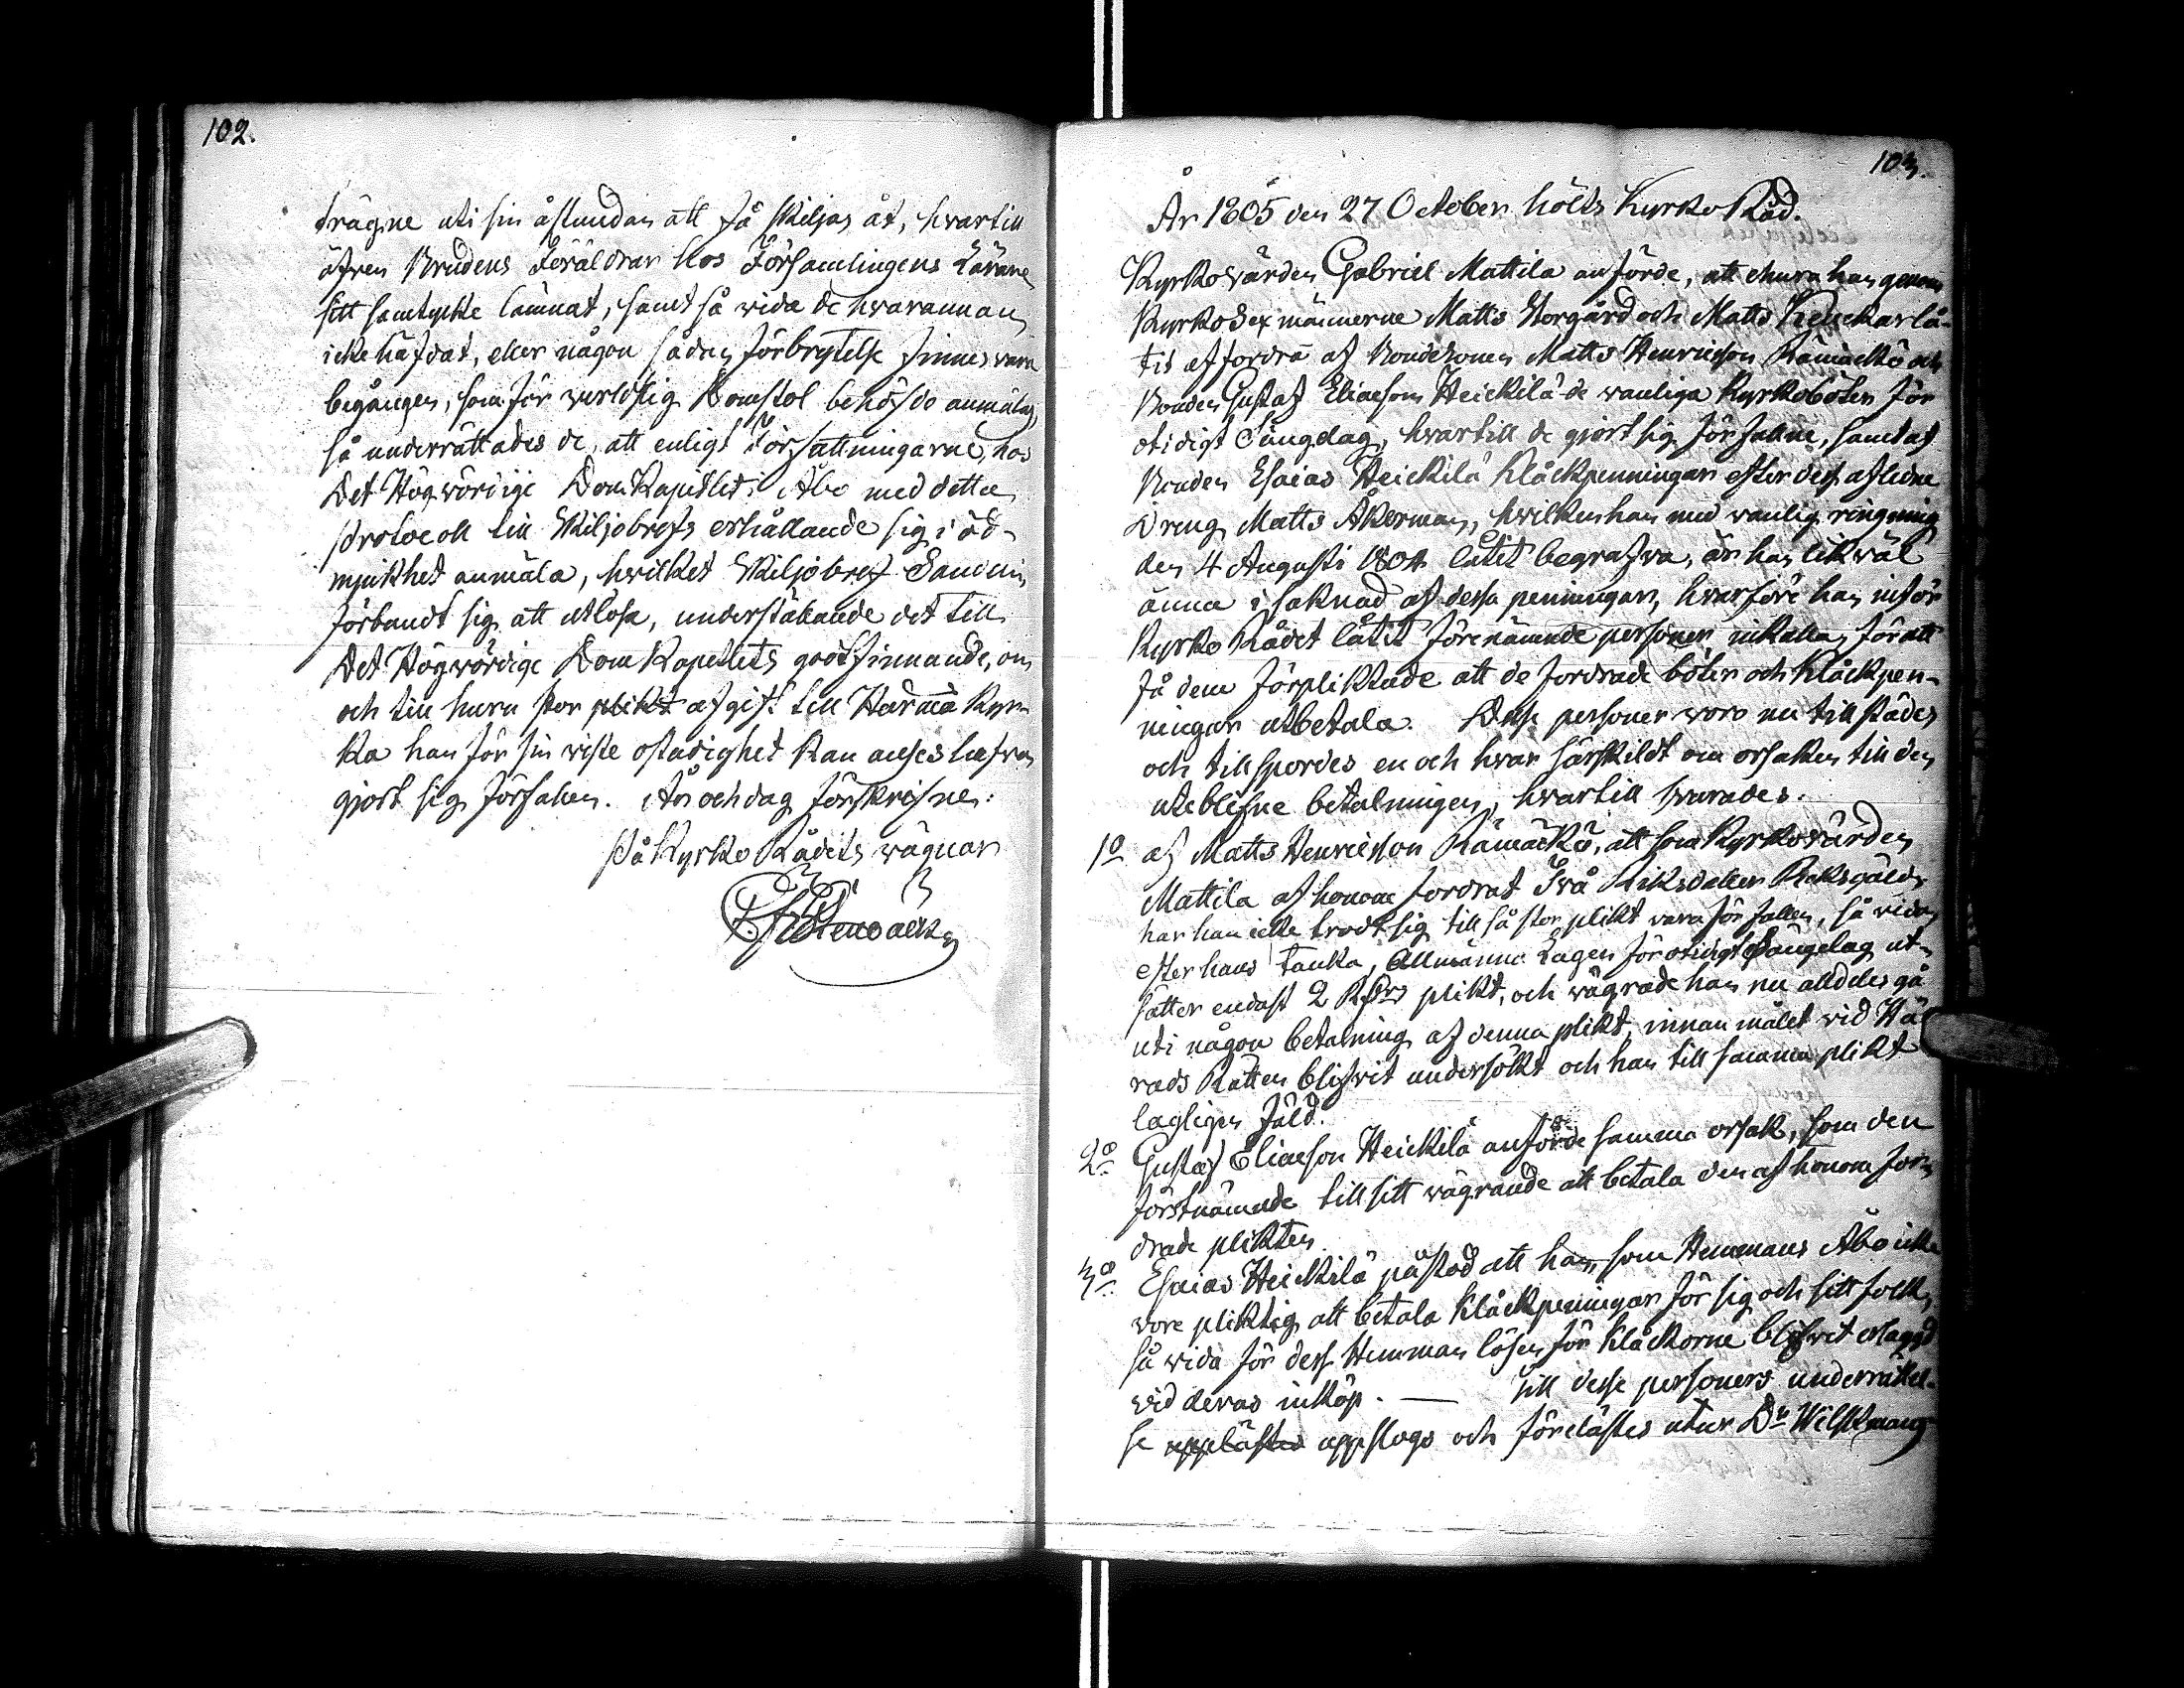 102.
trägne uti sin åstundan att få skiljas åt, hvartill
äfven Brudens Föräldrar hos Församlingens Lärare
sitt samtycke lämnat, samt så vida de hvarannan
icke häfdat, eller någon sådan förbrytelse finnes vara
begången, som för verldslig Domstol behöfde anmälas,
så underrättades de, att enligt Författningarne, hos
Det Högvördige DomKapitlet i Åbo med detta
Protocoll till Skiljobrefs erhållande sig i öd-
mjukhet anmäla, hvilket Skiljobref
förbandt sig att utlösa, understäldande det till
Det Högvördige DomKapitlets godtfinnande, om
och till huru stor plikt afgift till Härmä Kyr-
ka han för sin viste ostadighet kan anses hafva
gjort sig förfallen. År och dag förskrifne.
På Kyrko Rådets vägnar
103.
År 1805 den 27 October hölts Kyrko Råd.
Kyrkovärden Gabriel Mattila anförde, att ehuru han genom
KyrkoSexmännerne Matts Storgård och Matts Keuckar lå-
tit affordra af Bondesonen Matts Henricsson Rämäckö och
Bonden Gustaf Eliaeson Heickilä de vanliga Kyrkoböter för
otidigt Sängelag, hvartill de gjort sig förfallne, samt af
Bonden Esaias Heickilä Klåckpenningar efter dess afledne
Dreng Matts Åkerman, hvilken han med vanlig ringning
den 4 Augusti 1804 låtit begrafva, är han likväl
ännu i saknad af dessa penningar, hvarföre han inför
Kyrko Rådet låtit förenämnde personer inkalla, för att
få dem förpliktade att de fordrade böter och Klåckpen-
ningar utbetala. Desse personer voro nu tillstädes
och tillspordes en och hvar särskildt om orsaken till den
uteblifne betalningen, hvartill svarades.
1o af Matts Henricsson Rämäckö, att som Kyrkovärden
Mattila af honom fordrat Två Riksdaler Riksgälds
har han icke trodt sig till så stor plikt vara förfallen, så vida
efter hans tanka, Allmänna Lagen för otidigt Sängelag ut-
sätter endast 2 plikt, och vägrade han nu alldeles gå
uti någon betalning af denna plikt, innan målet vid Hä-
rads Rätten blifvit undersökt och han till samma plikt
lagligen fäld.
2o Gustaf Eliaeson Heickilä anförde samma orsak, som den
förstnämnde till sitt vägrande att betala den af honom for-
drade plikten.
3o Esaias Heickilä påstod att han, som Hemmans Åbo icke
vore pliktig att betala Klåckpenningar för sig och sitt folk,
så vida för dess Hemman lösen för Klåckorne blifvit erlagd
vid deras inköp. — Till desse personers underrättel-
se upplästes uppslogs och förelästes utur Dr Wilskmans